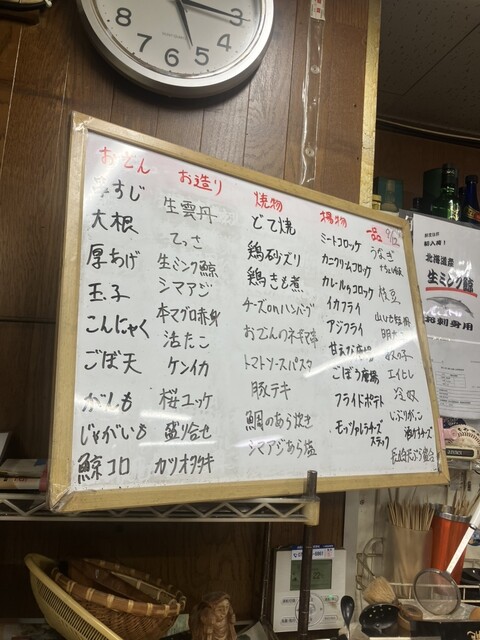 3
4
5
6
7
8
おでん
牛すじ
大根
厚あげ
玉子
こんにゃく
ごぼ天
がんも
じゃがいも
鯨コロ
お造り
生雲丹
てっさ
生ミンク鯨
シマアジ
本マグロ赤身
活たこ
ケンイカ
桜ユッケ
盛合せ
カツオタタキ
焼物
どて焼
鶏砂ズリ
鶏きも煮
チーズonハンバーグ
おでんのネギマ串
トマトソースパスタ
豚テキ
鯛のあら炊き
シマアジあら塩
揚物
ミートコロッケ
カニクリームコロッケ
カレールゥコロッケ
イカフライ
アジフライ
甘えび唐揚
ごぼう唐揚
フライドポテト
モッツァレラチーズ
スティック
一品
9/12
うなぎ
枝豆
エイヒレ
冷奴
いぶりがっこ
酒カケチーズ
新入荷!
北海道産
生ミンク鯨
お刺身用